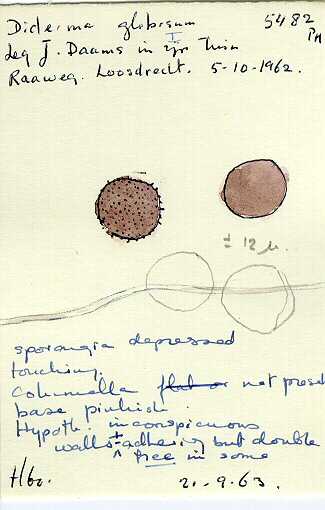 Diderma globosum 5482
leg J. Daams in zijn tuin PM
Raaweg. Loosdrecht. 5-10-1962.
± 12 µ.
sporangia depressed
touching.
Columella flat or not present
base pinkish.
Hypoth: inconspicuous
walls ± adhering but double
free in some
21-9-63.